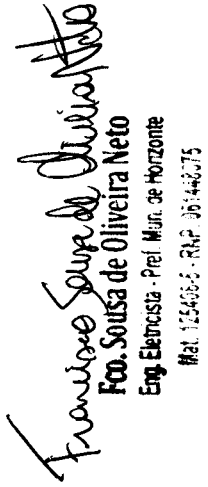 Francisco Sousa de Oliveira Neto
Fco. Sousa de Oliveira Neto
Eng. Eletricista - Pref. Mun. de Horizonte
Mat. 125406-6 - RNP. 061448075